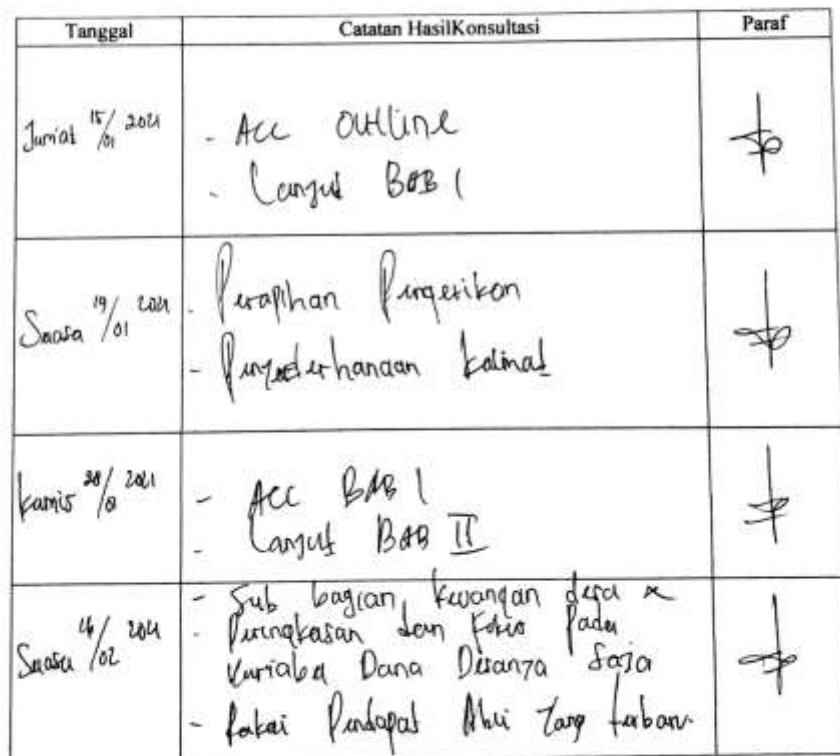 Tanggal Catatan HasilKonsultasi Paraf
Jum'at 15/01 2021
- Acc Outline
- Lanjut BAB I
Selasa 19/01 2021
- Perapihan Pengetikan
- Penyederhanaan kalimat
Kamis 28/01 2021
- Acc BAB I
- Lanjut BAB II
Selasa /02 2021
- Sub bagian keuangan desa x
- Peringkasan dan Fokus Pada
Variabel Dana Desanya Saja
- Pakai Pendapat Ahli Yang terbaru.